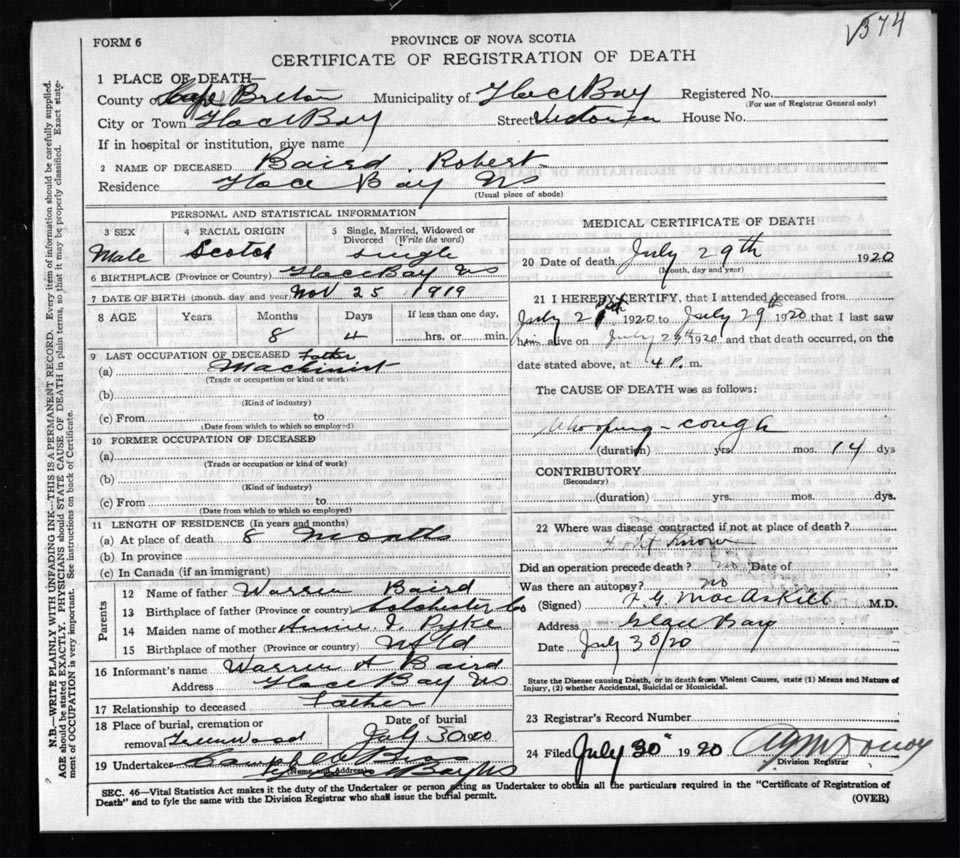 374
FORM 6
PROVINCE OF NOVA SCOTIA
CERTIFICATE OF REGISTRATION OF DEATH
1 PLACE OF DEATH—
County of Cape Breton Municipality of Glace Bay Registered No.
(For use of Registrar General only)
City or Town Glace Bay Street Victoria House No.
If in hospital or institution, give name
2 NAME OF DECEASED Baird Robert
Residence Glace Bay NS
(Usual place of abode)
PERSONAL AND STATISTICAL INFORMATION
3 SEX 4 RACIAL ORIGIN 5 Single, Married, Widowed or Divorced (Write the word)
Male Scotch Single
6 BIRTHPLACE (Province or Country) Glace Bay NS
7 DATE OF BIRTH (month, day and year) Nov 25 1919
8 AGE Years Months Days If less than one day,
8 4 hrs. or min.
9 LAST OCCUPATION OF DECEASED Father
(a) Machinist
(Trade or occupation or kind of work)
(b)
(Kind of industry)
(c) From to
(Date from which to which so employed)
10 FORMER OCCUPATION OF DECEASED
(a)
(Trade or occupation or kind of work)
(b)
(Kind of industry)
(c) From to
(Date from which to which so employed)
11 LENGTH OF RESIDENCE (In years and months)
(a) At place of death 8 months
(b) In province
(c) In Canada (if an immigrant)
Parents
12 Name of father Warren Baird
13 Birthplace of father (Province or country) Colchester Co
14 Maiden name of mother Annie J. Pyke
15 Birthplace of mother (Province or country) Nfld
16 Informant's name Warren A Baird
Address Glace Bay NS
17 Relationship to deceased Father
18 Place of burial, cremation or Date of burial
removal Greenwood July 30 1920
19 Undertaker
(Name and Address) Bay NS
MEDICAL CERTIFICATE OF DEATH
20 Date of death July 29th 1920
(Month, day and year)
21 I HEREBY CERTIFY, that I attended deceased from
July 1920 to July 29th 1920 that I last saw
him alive on July 29th 1920 and that death occurred, on the
date stated above, at 4 P. m.
The CAUSE OF DEATH was as follows:
Whooping-cough
(duration) yrs. mos. 14 dys
CONTRIBUTORY
(Secondary)
(duration) yrs. mos. dys.
22 Where was disease contracted if not at place of death?
know
Did an operation precede death? no Date of
Was there an autopsy? no
(Signed) MacAskill M.D.
Address Glace Bay
Date July 30/20
State the Disease causing Death, or in death from Violent Causes, state (1) Means and Nature of
Injury, (2) whether Accidental, Suicidal or Homicidal.
23 Registrar's Record Number
24 Filed July 30" 1920
Division Registrar
SEC. 46—Vital Statistics Act makes it the duty of the Undertaker or person acting as Undertaker to obtain all the particulars required in the "Certificate of Registration of
Death" and to fyle the same with the Division Registrar who shall issue the burial permit. (OVER)
N.B.—WRITE PLAINLY WITH UNFADING INK—THIS IS A PERMANENT RECORD. Every item of information should be carefully supplied.
AGE should be stated EXACTLY. PHYSICIANS should STATE CAUSE OF DEATH in plain terms, so that it may be properly classified. Exact state-
ment of OCCUPATION is very important. See instructions on back of Certificate.